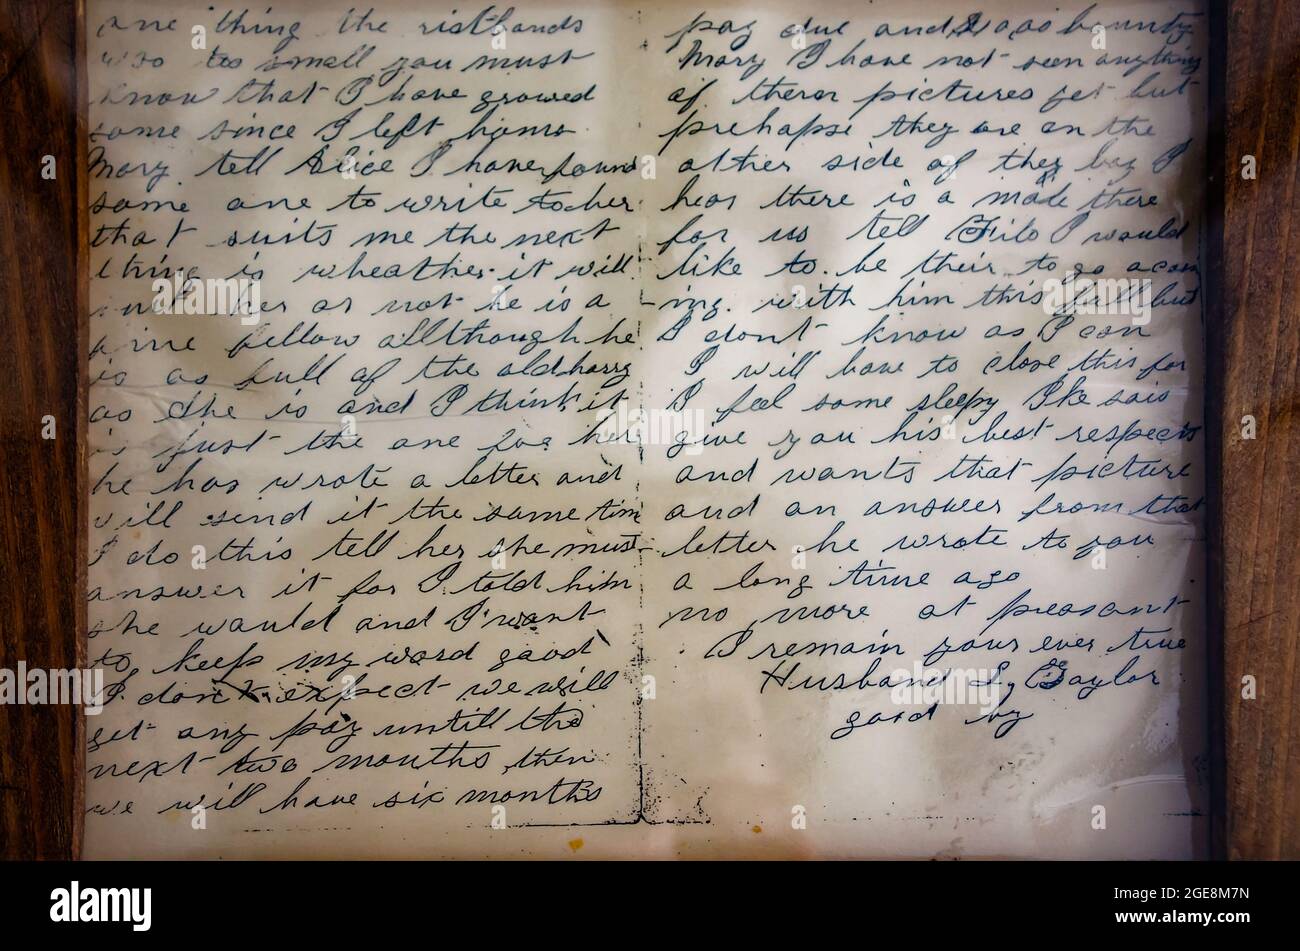 one thing the ristbands
was too small you must
know that I have growed
some since I left home
Mary tell Alice I have found
some one to write to her
that suits me the next
thing is wheather it will
suit her or not he is a
fine fellow allthough he
is as full of the old harry
as she is and I think it
is just the one for her
he has wrote a letter and
will send it the same time
I do this tell her she must
answer it for I told him
she would and I want
to keep my word good
I don't expect we will
get any pay untill the
next two months then
we will have six months
pay due and bounty
Mary I have not seen anything
of them pictures yet but
prehapse they are on the
other side of the bay I
hear there is a male there
for us tell Filo I would
like to be their to go acoon
ing with him this fall but
I dont know as I can
I will have to close this for
I feel some sleepy Ike sais
give you his best respects
and wants that picture
and an answer from that
letter he wrote to you
a long time ago
no more at preasant
I remain your ever true
Husband L, Taylor
good by
alamy
Image ID: 2GE8M7N
www.alamy.com